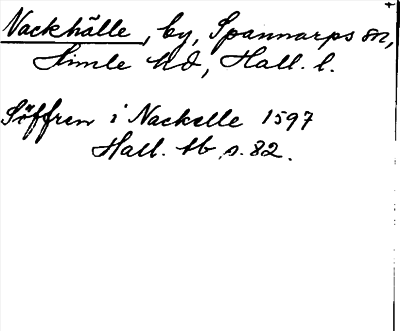 Nackhälle, by, Spannarps sn,
Himle hd, Hall. l.
Söffren i Nackelle 1597
Hall. tb, s. 82.